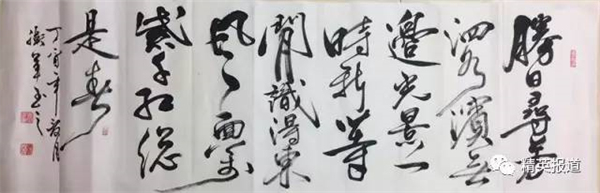 勝日尋芳
泗水濱無
邊光景一
時新等
閒識得東
風面萬
紫千紅總
是春
丁酉年月
軍書之
精英报道